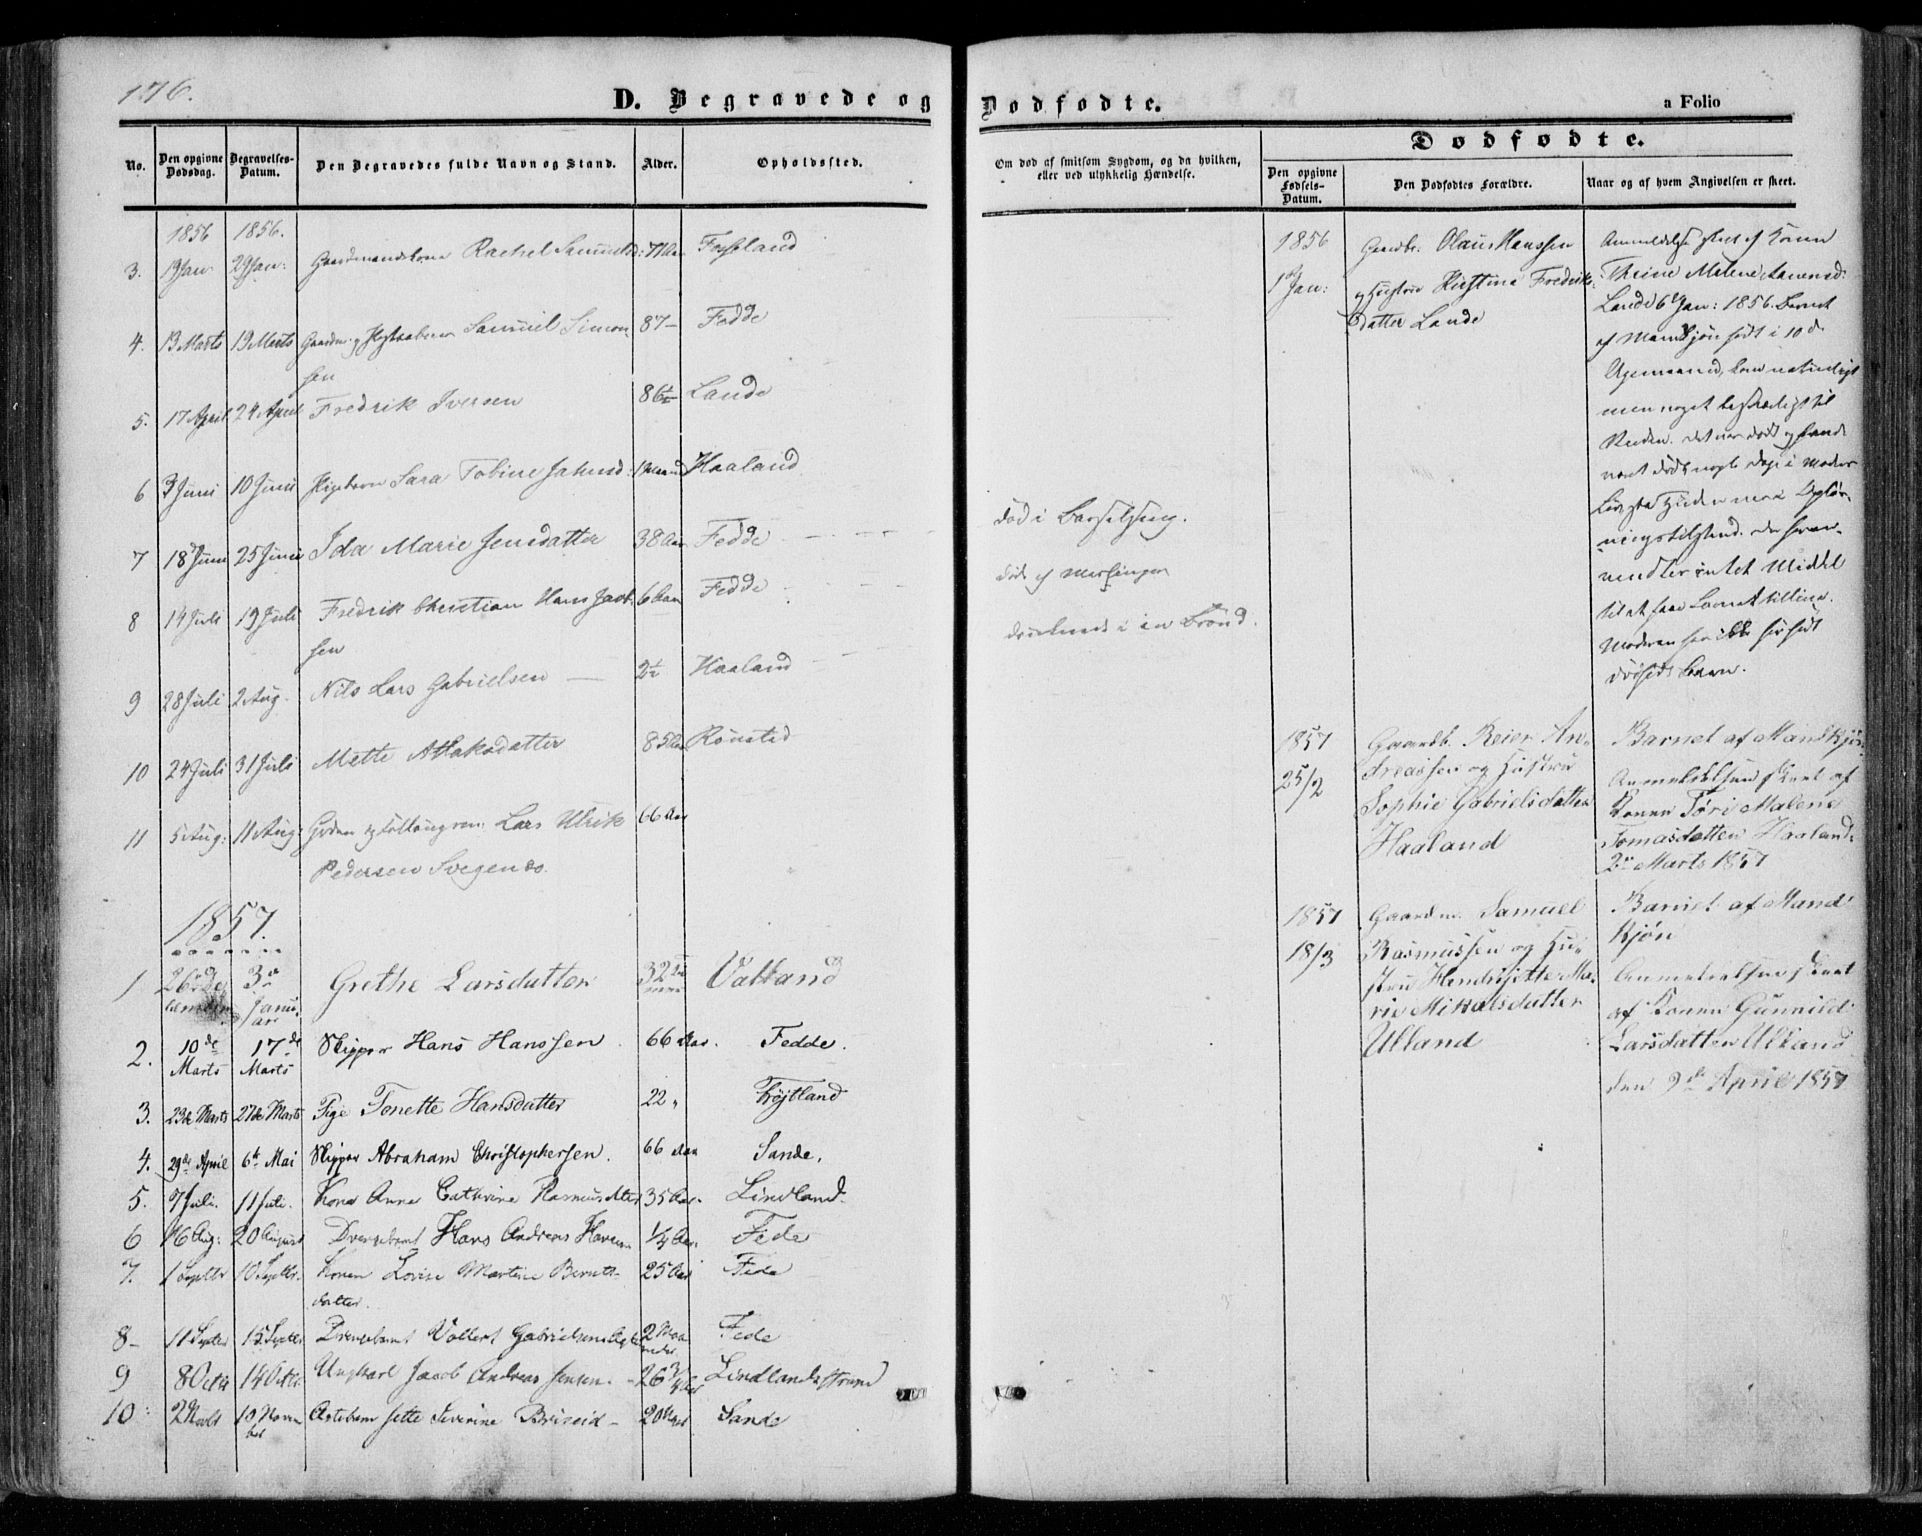 176.
D. Begravede og Dødfødte.
a Folio
No.
Den opgivne Dødsdag.
Begravelses-Datum.
Den Begravedes fulde Navn og Stand.
Alder.
Opholdssted.
Om død af smitsom Sygdom, og da hvilken, eller ved ulykkelig Hændelse.
Dødfødte.
Den opgivne Fødsels-Datum.
Den Dødfødtes Forældre.
Naar og af hvem Angivelsen er skeet.
1856 1856.
3. 19 Jan: 29 Jan: Gaardmandskone Rachel Samuelsd: 71 Aar
4. 13 Marts 19 Marts Samuel Simon 87 – Fedde
sen
5. 17 April 24 April Fredrik Iversen 86 Lande
6 3 Juni 10 Juni Pigebarn Sara Tobine 1 Haaland
7 18 Juni 25 Juni Ida Marie Jensdatter 38 Aar Fedde død i Barselseng.
8 14 Juli 19 Juli Fredrik Christian Hans 6 Aar Fedde død af
sen
9 28 Juli 2 Aug. Nils Lars Gabrielsen 2 Haaland i en Brønd.
10 24 Juli 31 Juli Mette 85 Aar
11 5 Aug: 11 Aug: Lars Ulrik 66 Aar
Pedersen
1857.
1 26de 3de Grethe Larsdatter 32 Vatland
Januar
2. 10de 17de Skipper Hans Hanssen. 66 Aar. Fedde.
Marts Marts
3. 23de Marts 27de Marts Pige Tonette Hansdatter 22 " Tøjtland
4. 29de April 6te Mai Skipper Abraham Christophersen. 66 Aar Sande.
5. 7 Juli. 11 Juli. Kone Anna Cathrine Rasmusdtter 35 Aar. Lindland
6 16 Aug: 20 August Drengebarn Hans Andreas 1/4 Aar. Fede
7. 1 Septbr 10 Septbr. Konen Lovise Martine Bernts- 25 Aar Fede
datter.
8 – 11 Septbr 15 Septbr Drengebarn Vollert Gabrielsen 2 Maaneder Fede
9 8 Octbr 14 Octbr. Ungkarl Jacob Andreas Jensen. – 26 3/4 Aar Lindlandsstrand
10 2 Novbr 10 November Jette Severine – 20 Sande
1856
1 Jan:
Gaardbr. Olaus Hanssen
og Hustru Kirstina Fredriks-
datter Lande
Anmeldelse skeet af Konen
Thrine Malene
Lande 6 Jan: 1856. Barnet
af Mandkjøn født i 10de
men noget beskadiget til
Huden. det var dødt og havde
været dødt nogle Dage i Moders
Liv,
intet Middel
til at faae Barnet tillive.
Moderen har ikke før født
dødfødt Barn.
1857
25/2
Gaardb. Reier An-
dreassen og Hustru
Sophie Gabrielsdatter
Haaland
Barnet af Mandkjøn.
Anmeldelsen skeet af
Konen Tøri Malene
Tomasdatter Haaland
2den Marts 1857
1857
18/3
Gaardm. Samuel
Rasmussen og Hu-
stru Hendrijette Ma-
rie Mikalsdatter
Ulland
Barnet af Mand
kjøn
Anmeldelsen skeet
af Konen Gunnild
Larsdatter Ulland
den 9de April 1857